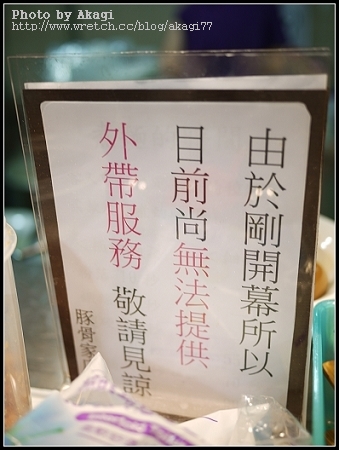 Photo by Akagi
http://www.wretch.cc/blog/akagi77
由於剛開幕所以
目前尚無法提供
外帶服務 敬請見諒
豚骨家